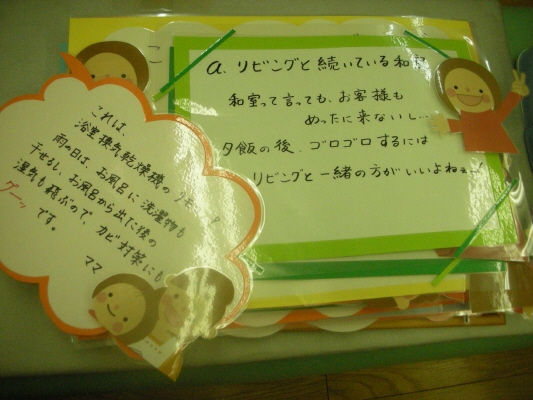 こ
a. リビングと続いている和
和室って言っても、お客様も
めったに来ないし…
夕飯の後、ゴロゴロするには
リビングと一緒の方がいいよねぇ!
これは、
浴室換気乾燥機のリモ
雨の日は、お風呂に洗濯物も
干せるし、お風呂から出た後の
湿気も飛ぶので、カビ対策にも
グーッ です。
ママ